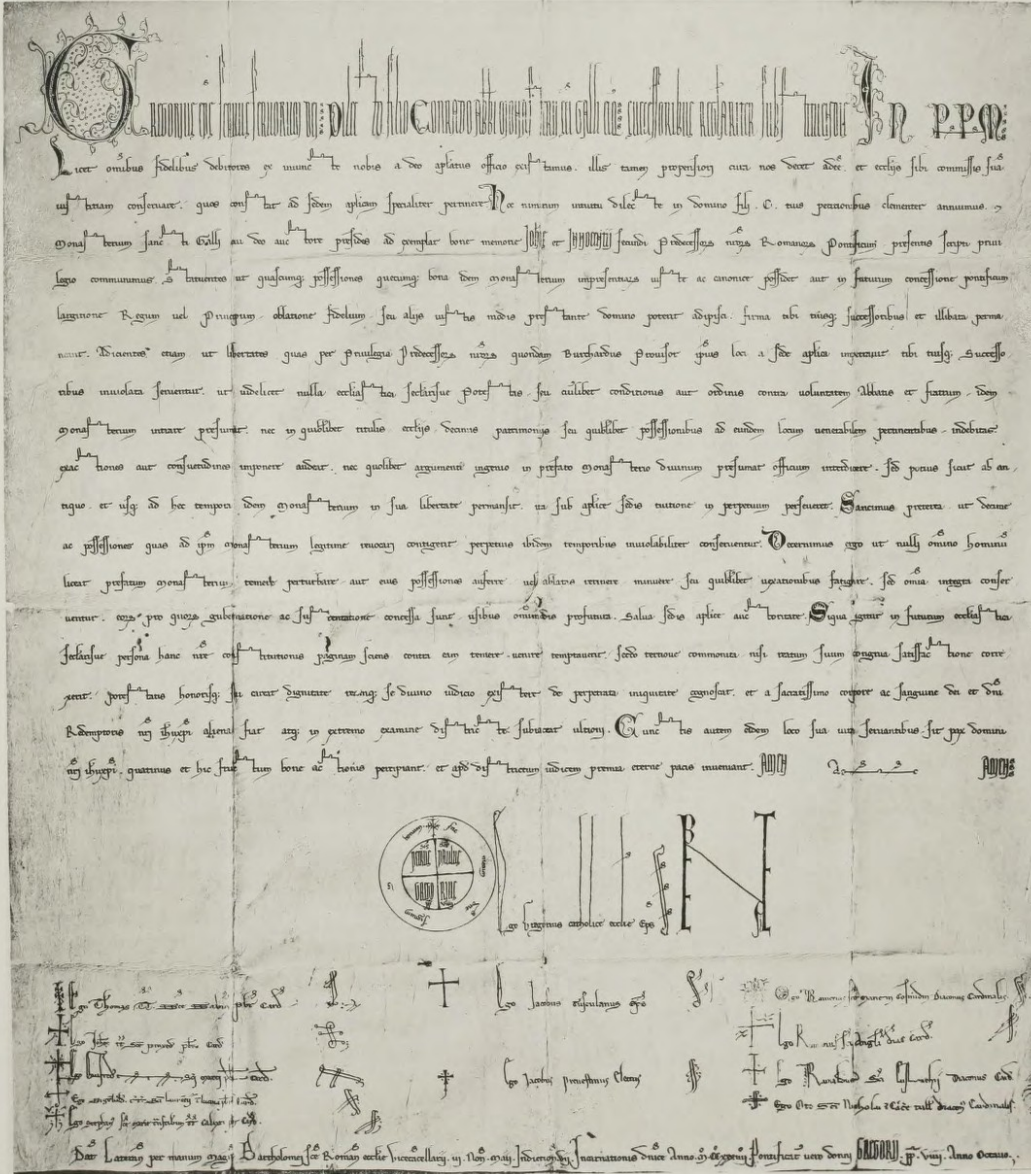 Gregorius eps servus servorum dei Dilecto filio Conrado abbati monasterii sancti Galli eiusque successoribus In P.P.M.
Licet omībus fidelibus debitores ex iniuncto nobis a deo aplatus officio existamus. illis tamen propensiori cura nos decet adeē. et ecclijs sibi commissis suā
iustitiam conservare. quos constat ad sedem aplicam specialiter pertinere Hoc nimirum intuitu dilecte in domino fili. C. tuis peticionibus clementer annuimus. et
Monasterium sancti Galli cui deo auctore presides ad exemplar bone memorie Johis et INNOCENTII secundi Predecessorꝝ nrorꝝ Romanorꝝ Pontificum presentis scripti privi
legio communimus. Statuentes ut quascumqꝫ possessiones quecumqꝫ bona idem Monasterium inpresentiarꝝ iuste ac canonice possidet aut in futurum concessione pontificum
largitione Regum vel Principum. oblatione fidelium. seu alijs iustis modis prestante domino poterit adipisci. firma tibi tuisqꝫ successoribus et illibata perma
neant. Adicientes etiam ut libertates quas per Privilegia Predecessorꝝ nrorꝝ quondam Burchardus Provisor ipius loci a sede aplica impetravit tibi tuisqꝫ Successo
ribus inviolata serventur. ut videlicet nulla ecclīastica seclarisve Potestas. seu cuilibet conditionis aut ordinis contra voluntatem Abbatis et fratrum. idem
Monasterium intrare presumat. nec in quibuslibet titulis. ecclijs. decanis patrimonijs seu quiblibet possessionibus ad eundem locum venerabilem pertinentibus. indebitas
exactiones aut consuetudines imponere audeat. nec quolibet argumenti ingenio in prefato Monasterio divinum presumat officium interdicere. sed potius sicut ab an
tiquo. et usqꝫ ad hec tempora idem Monasterium in sua libertate permansit. ita sub aplice sedis tuitione in perpetuum perseveret. Sancimus preterea. ut decime
ac possessiones quas ad ipm monasterium legitime revocari contigerit perpetuis ibidem temporibus inviolabiliter conserventur. Decernimus ergo ut nulli omīno hominū
liceat prefatum Monasteriū. temere perturbare. aut eius possessiones auferre. vel ablatas retinere minuere seu quiblibet vexationibus fatigare. sed omīa integra conser
ventur. eorꝝ pro quorꝝ gubernatione ac sustentatione concessa sunt. usibus omīmodis profutura. Salva sedis aplice auctoritate. Siqua igitur in futurum ecclīastica
seclarisve persona hanc nre constitutionis paginam sciens contra eam temere. venire temptaverit. secdo tertiove commonita nisi reatum suum congrua satisfactione corre
xerit. potestatis honorisqꝫ sui careat dignitate reamqꝫ se divino iudicio existere de perpetrata iniquitate cognoscat. et a sacratissimo corpore ac sanguine dei et dnī
Redemptoris nrī ihuxpī aliena fiat atqꝫ in extremo examine districte subiaceat ultioni. Cunctis autem eidem loco sua iura servantibus. sit pax domini
nrī ihuxpī. quatinus et hic fructum bone actionis percipiant. et apd districtum iudicem premia eterne pacis inveniant. AMEN AMEN
Ego Gregorius catholice ecclīe Eps
Ego Thomas Sabin pbr Card
Ego Jacobus tusculanus epc
Ego Jacobus prenestinus Electus
Ego Rainerius Diaconus Cardinalis
Ego Sci Angli diac Card
Ego Diaconus Card
Ego Oto Sci Nicholai Tull diacon Cardinalis
Dat Laterani per manum magri Bartholomei sce Romane ecclie vicecancellarij
Pontificat vero domni GREGORII PP. VIIII. Anno Octavo.